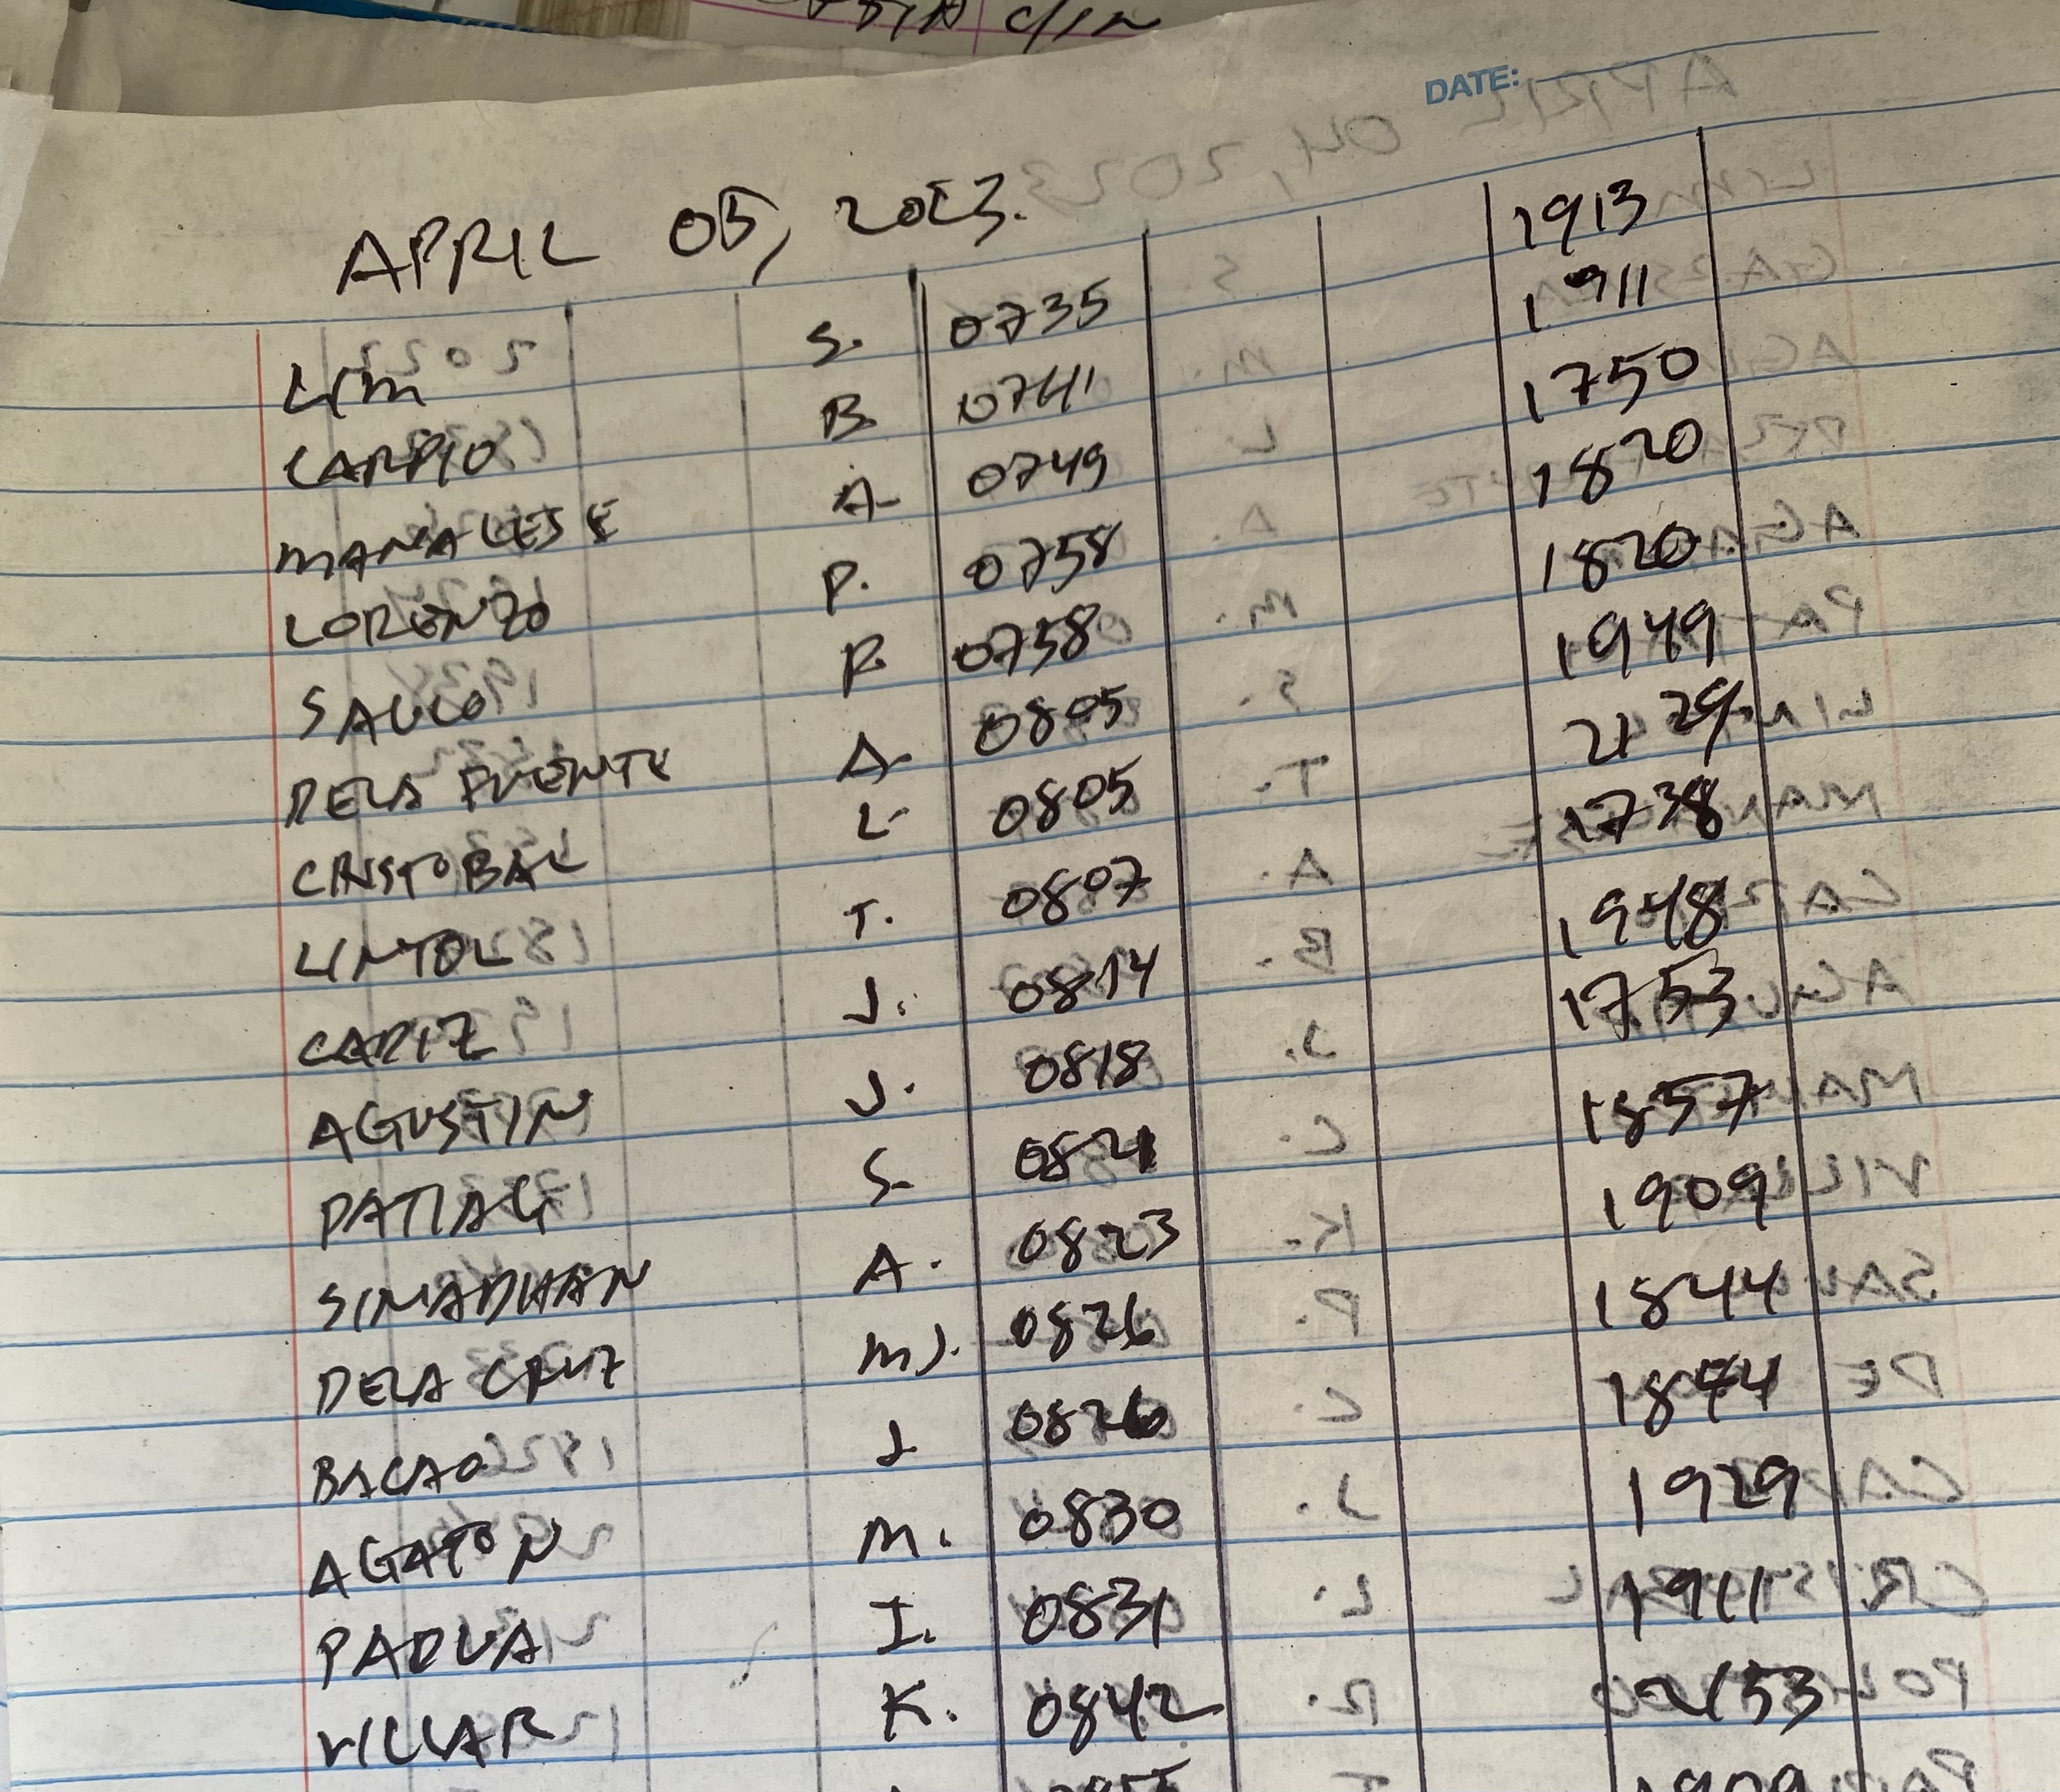 DATE:
APRIL 05, 2023.
LIM S. 0735 1913
CARPIO B. 0741 1911
MANALESE A. 0749 1750
LORENZO P. 0758 1820
SAULO P. 0758 1820
DELA FUENTE A. 0805 1949
CRISTOBAL L. 0805 2129
LINTOL T. 0807 1738
CARIZ J. 0814 1948
AGUSTIN J. 0818 1753
PATIAG S. 0821 1857
SIMADHAN A. 0823 1909
DELA CRUZ MJ. 0826 1844
BACAO J 0826 1844
AGATON M. 0830 1929
PADUA I. 0831 1911
VILLAR K. 0842 2153
1909